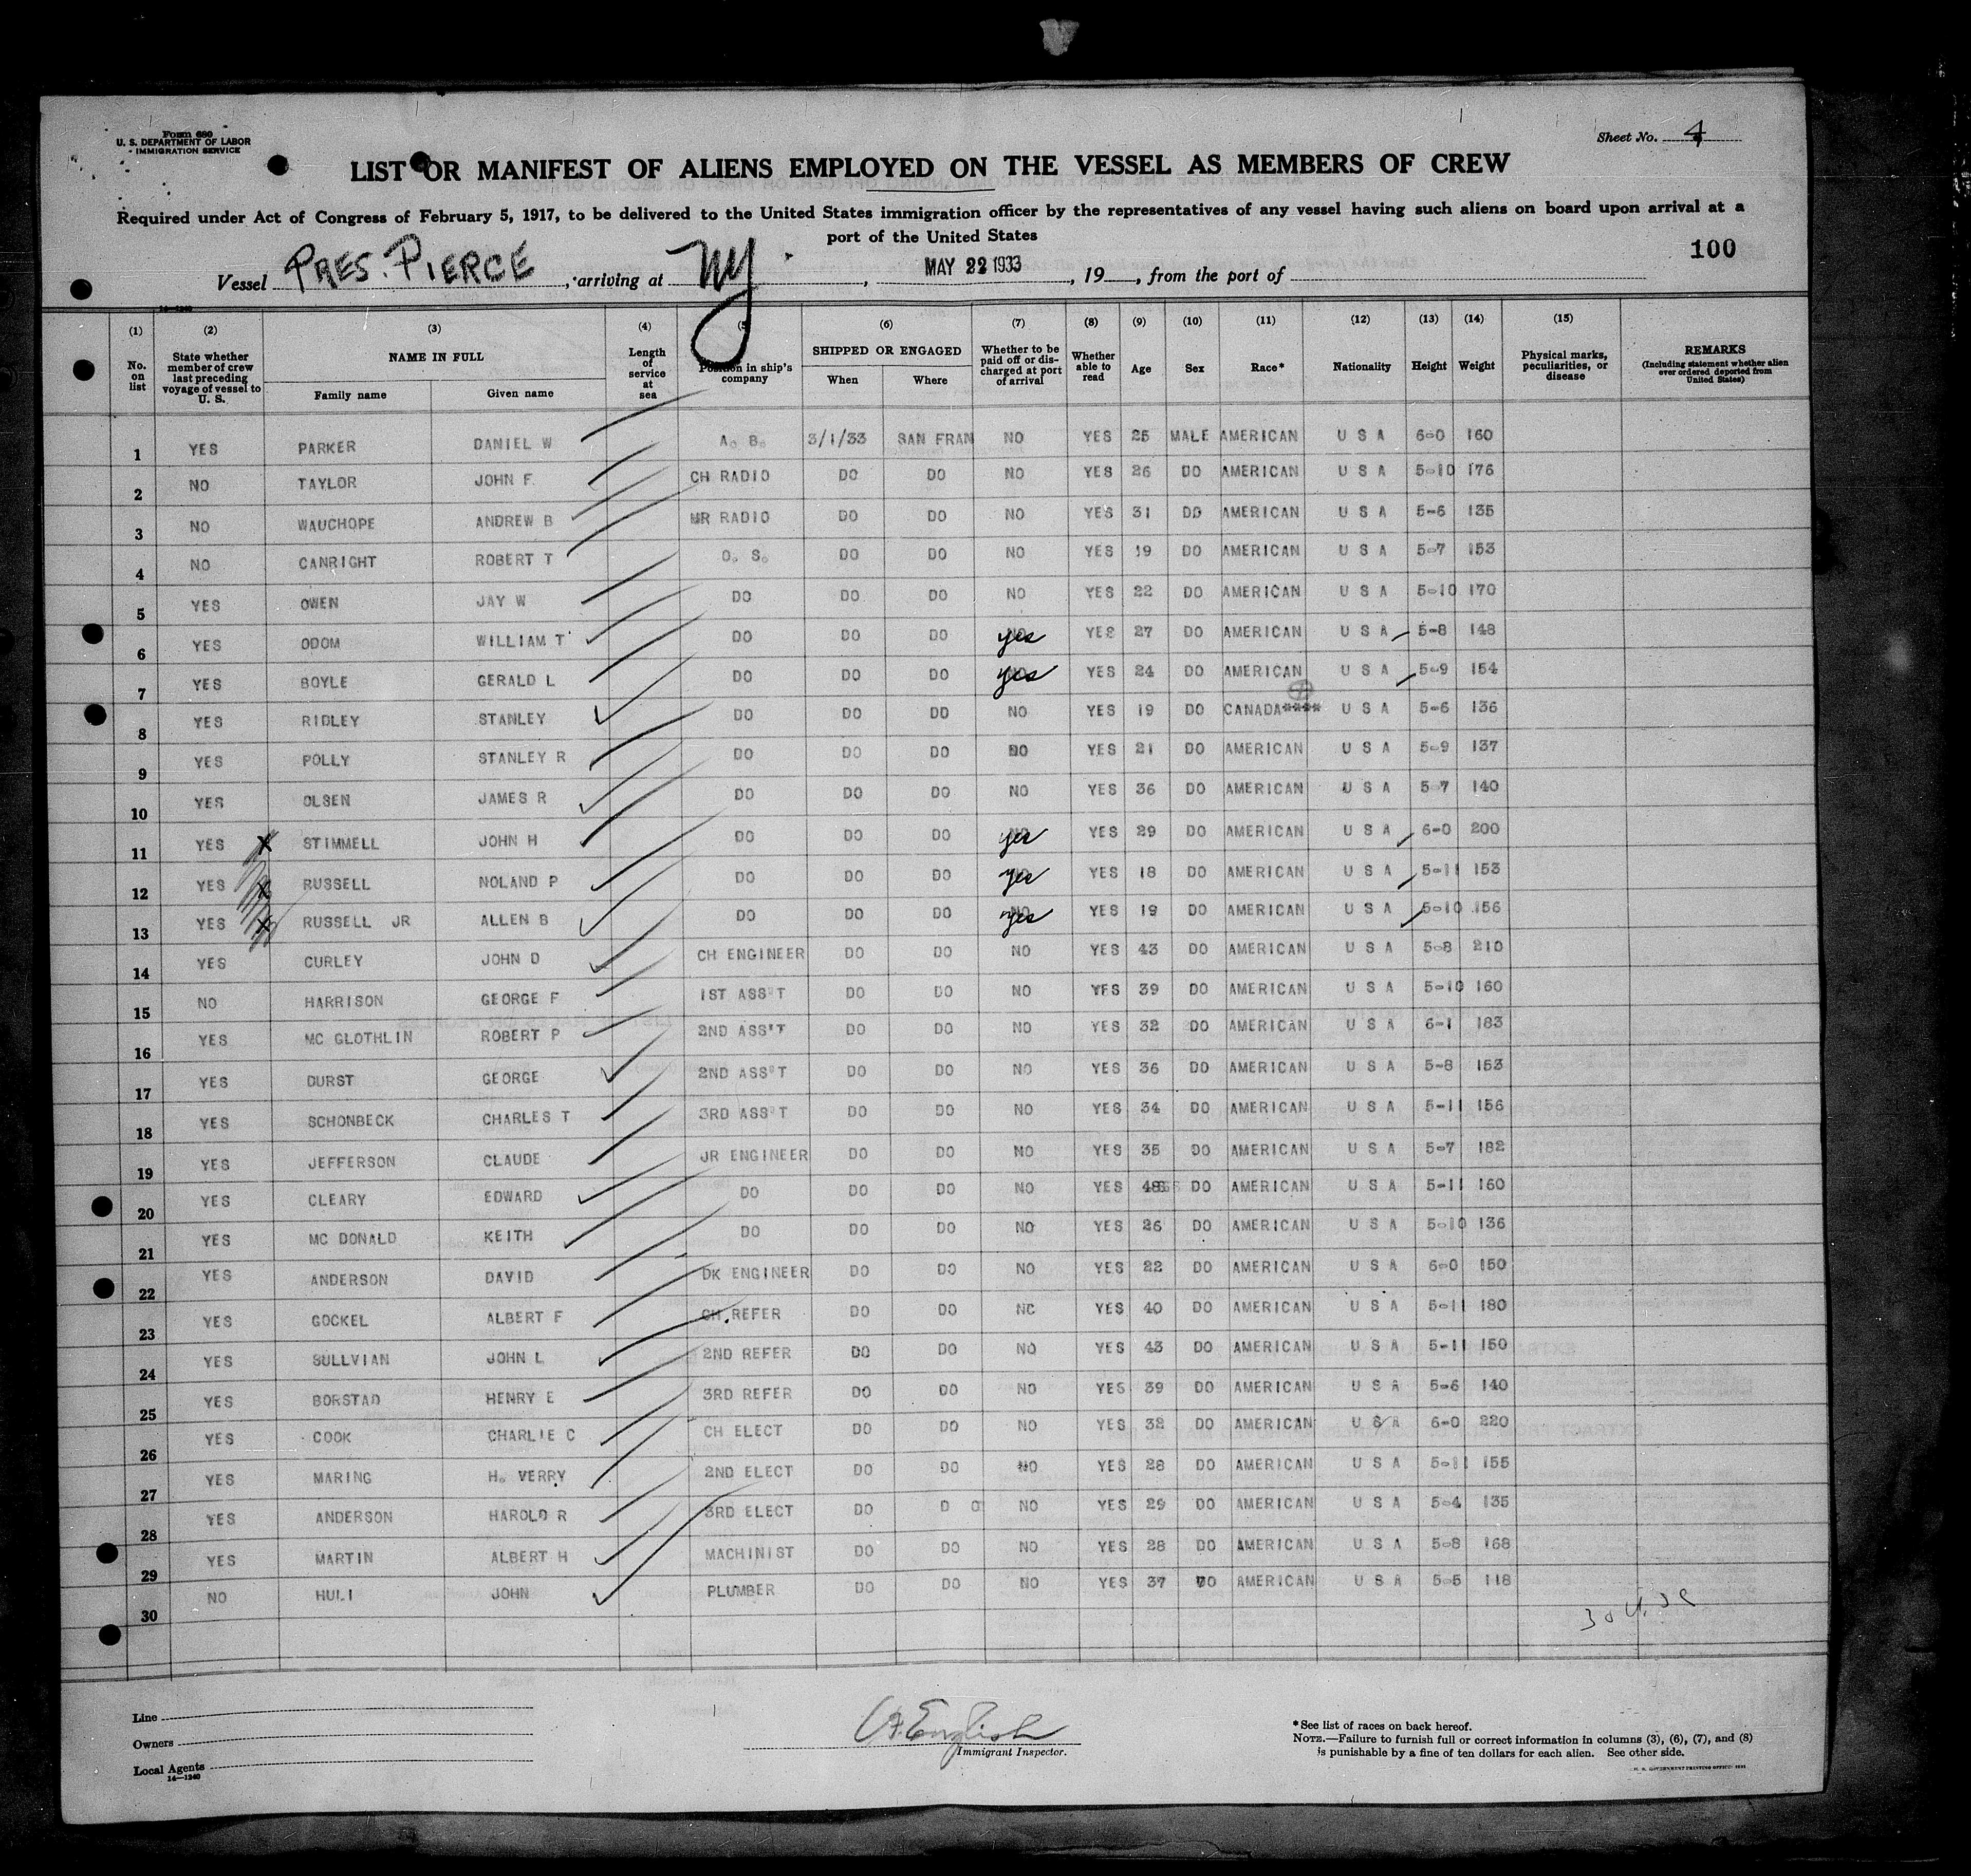 Form 680
U. S. DEPARTMENT OF LABOR
IMMIGRATION SERVICE
Sheet No. 4
LIST OR MANIFEST OF ALIENS EMPLOYED ON THE VESSEL AS MEMBERS OF CREW
Required under Act of Congress of February 5, 1917, to be delivered to the United States immigration officer by the representatives of any vessel having such aliens on board upon arrival at a
port of the United States
100
Vessel PRES. PIERCE, arriving at NY., MAY 22 1933, 19, from the port of
14—1240
(1) (2) (3) (4) (5) (6) (7) (8) (9) (10) (11) (12) (13) (14) (15)
No. on list
State whether member of crew last preceding voyage of vessel to U. S.
NAME IN FULL
Family name Given name
Length of service at sea
Position in ship's company
SHIPPED OR ENGAGED
When Where
Whether to be paid off or discharged at port of arrival
Whether able to read
Age
Sex
Race*
Nationality
Height
Weight
Physical marks, peculiarities, or disease
REMARKS
(Including statement whether alien ever ordered deported from United States)
1 YES PARKER DANIEL W A. B. 3/1/33 SAN FRAN NO YES 25 MALE AMERICAN U S A 6-0 160
2 NO TAYLOR JOHN F. CH RADIO DO DO NO YES 26 DO AMERICAN U S A 5-10 176
3 NO WAUCHOPE ANDREW B MR RADIO DO DO NO YES 31 DO AMERICAN U S A 5-6 135
4 NO CANRIGHT ROBERT T O. S. DO DO NO YES 19 DO AMERICAN U S A 5-7 153
5 YES OWEN JAY W DO DO DO NO YES 22 DO AMERICAN U S A 5-10 170
6 YES ODOM WILLIAM T DO DO DO yes YES 27 DO AMERICAN U S A 5-8 148
7 YES BOYLE GERALD L DO DO DO yes YES 24 DO AMERICAN U S A 5-9 154
8 YES RIDLEY STANLEY DO DO DO NO YES 19 DO CANADA**** U S A 5-6 136
9 YES POLLY STANLEY R DO DO DO NO YES 21 DO AMERICAN U S A 5-9 137
10 YES OLSEN JAMES R DO DO DO NO YES 36 DO AMERICAN U S A 5-7 140
11 YES X STIMMELL JOHN H DO DO DO yes YES 29 DO AMERICAN U S A 6-0 200
12 YES X RUSSELL NOLAND P DO DO DO yes YES 18 DO AMERICAN U S A 5-11 153
13 YES X RUSSELL JR ALLEN B DO DO DO yes YES 19 DO AMERICAN U S A 5-10 156
14 YES CURLEY JOHN D CH ENGINEER DO DO NO YES 43 DO AMERICAN U S A 5-8 210
15 NO HARRISON GEORGE F 1ST ASS'T DO DO NO YES 39 DO AMERICAN U S A 5-10 160
16 YES MC GLOTHLIN ROBERT P 2ND ASS'T DO DO NO YES 32 DO AMERICAN U S A 6-1 183
17 YES DURST GEORGE 2ND ASS'T DO DO NO YES 36 DO AMERICAN U S A 5-8 153
18 YES SCHONBECK CHARLES T 3RD ASS'T DO DO NO YES 34 DO AMERICAN U S A 5-11 156
19 YES JEFFERSON CLAUDE JR ENGINEER DO DO NO YES 35 DO AMERICAN U S A 5-7 182
20 YES CLEARY EDWARD DO DO DO NO YES DO AMERICAN U S A 5-11 160
21 YES MC DONALD KEITH DO DO DO NO YES 26 DO AMERICAN U S A 5-10 136
22 YES ANDERSON DAVID DK ENGINEER DO DO NO YES 22 DO AMERICAN U S A 6-0 150
23 YES GOCKEL ALBERT F CH REFER DO DO NO YES 40 DO AMERICAN U S A 5-11 180
24 YES SULLVIAN JOHN L 2ND REFER DO DO NO YES 43 DO AMERICAN U S A 5-11 150
25 YES BORSTAD HENRY E 3RD REFER DO DO NO YES 39 DO AMERICAN U S A 5-6 140
26 YES COOK CHARLIE C CH ELECT DO DO NO YES 32 DO AMERICAN U S A 6-0 220
27 YES MARING H. VERRY 2ND ELECT DO DO NO YES 28 DO AMERICAN U S A 5-11 155
28 YES ANDERSON HAROLD R 3RD ELECT DO D O NO YES 29 DO AMERICAN U S A 5-4 135
29 YES MARTIN ALBERT H MACHINIST DO DO NO YES 28 DO AMERICAN U S A 5-8 168
30 NO HULI JOHN PLUMBER DO DO NO YES 37 DO AMERICAN U S A 5-5 118
Line
Owners
Local Agents
14—1240
English
Immigrant Inspector.
*See list of races on back hereof.
NOTE.—Failure to furnish full or correct information in columns (3), (6), (7), and (8)
is punishable by a fine of ten dollars for each alien. See other side.
U. S. GOVERNMENT PRINTING OFFICE